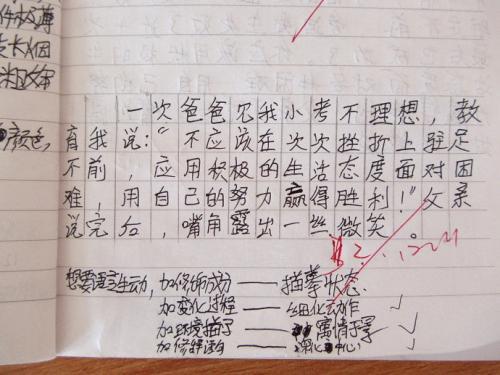 件极薄
颜色,
一次爸爸见我小考不理想，教
育我说：“不应该在次次挫折上驻足
不前，应用积极的生活态度面对困
难，用自己的努力赢得胜利！”父亲
说完后，嘴角露出一丝微笑。
想要语言生动，加修饰成分——描摹状态.
加变化过程——细化动作
加环境描写——寓情于景
加修辞